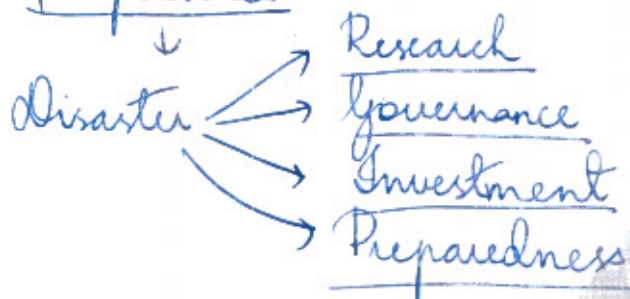 Disaster
Research
Governance
Investment
Preparedness